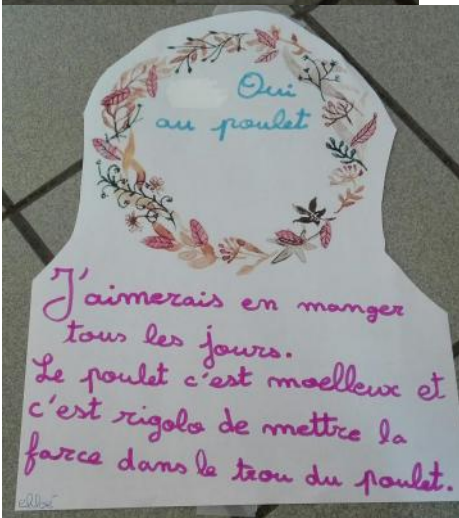 Oui
au poulet
J'aimerais en manger
tous les jours.
Le poulet c'est moelleux et
c'est rigolo de mettre la
farce dans le trou du poulet.
chloé